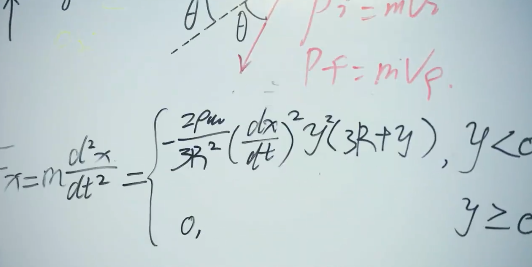 θ θ Pi = mVi
Pf = mVf.
x = m d²x/dt² = { - 2ρw/3R² (dx/dt)² y² (3R + y), y <
0, y ≥